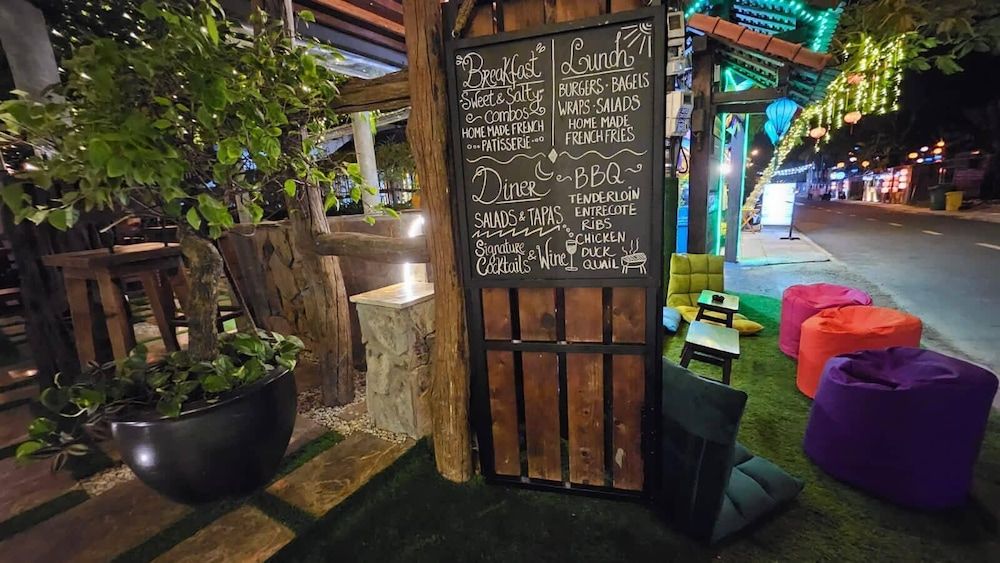 Breakfast
Sweet & Salty
Combos
HOME MADE FRENCH
PATISSERIE
Lunch
BURGERS · BAGELS
WRAPS · SALADS
HOME MADE
FRENCH FRIES
Diner
SALADS & TAPAS
Signature
Cocktails & Wine
BBQ
TENDERLOIN
ENTRECOTE
RIBS
CHICKEN
DUCK
QUAIL